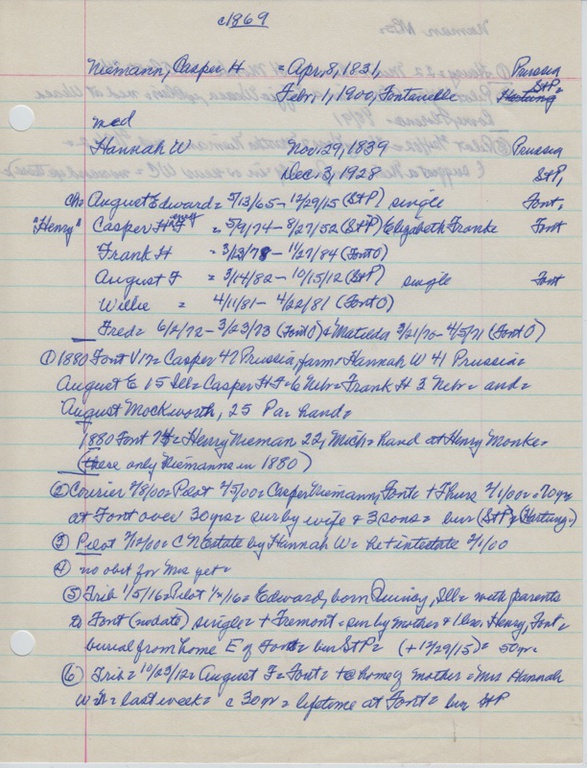 c1869
Niemann, Casper H = Apr, 8, 1831, Prussia
Febr, 1, 1900, Fontanelle StP=
med Hartung
Hannah W Nov. 29, 1839 Prussia
Dec. 3, 1928 StP,
ch= August Edward = 5/13/65 - 12/29/15 (StP) single Font,
"Henry" Casper H F = 5/9/74 - 8/27/52 (StP) Elizabeth Franke Font
Frank H = 3/23/78 - 11/27/84 (Font O)
August F = 3/14/82 - 10/15/12 (StP) single Font
Willie = 4/11/81 - 4/22/81 (Font O)
Fred = 6/2/72 - 3/23/73 (Font O) & Matilda 3/21/70 - 4/5/71 (Font O)
① 1880 Font V17 = Casper 47 Prussia, farm + Hannah W 41 Prussia =
August E 15 Ill = Casper H F = 6 Nebr = Frank H 3 Nebr = and =
August Mockworth, 25 Pa = hand =
1880 Font = Henry Nieman 22, Mich = hand at Henry Monke =
(these only Niemanns in 1880)
② Courier 2/8/00 = Pilot 2/5/00 = Casper Niemann, Fonte + Thurs 2/1/00 = 70 yrs
at Font over 30 yrs = sur by wife & 3 sons = bur (StP = (Hartung =)
③ Pilot 2/12/00 = C N Estate by Hannah W = he + intestate 2/1/00
④ no obit for Mrs yet =
⑤ Trib 1/5/16 = Pilot /16 = Edward, born Quincy, Ill = with parents
to Font (no date), single = + Fremont = sur by mother & 1 bro. Henry, Font =
burial from home E of Font = bur StP = (+ 12/29/15) = 50 yr =
⑥ Trib = 10/23/12 = August F = Font = + @ home of mother = Mrs Hannah
W N = last week = c 30 yr = lifetime at Font = bur StP